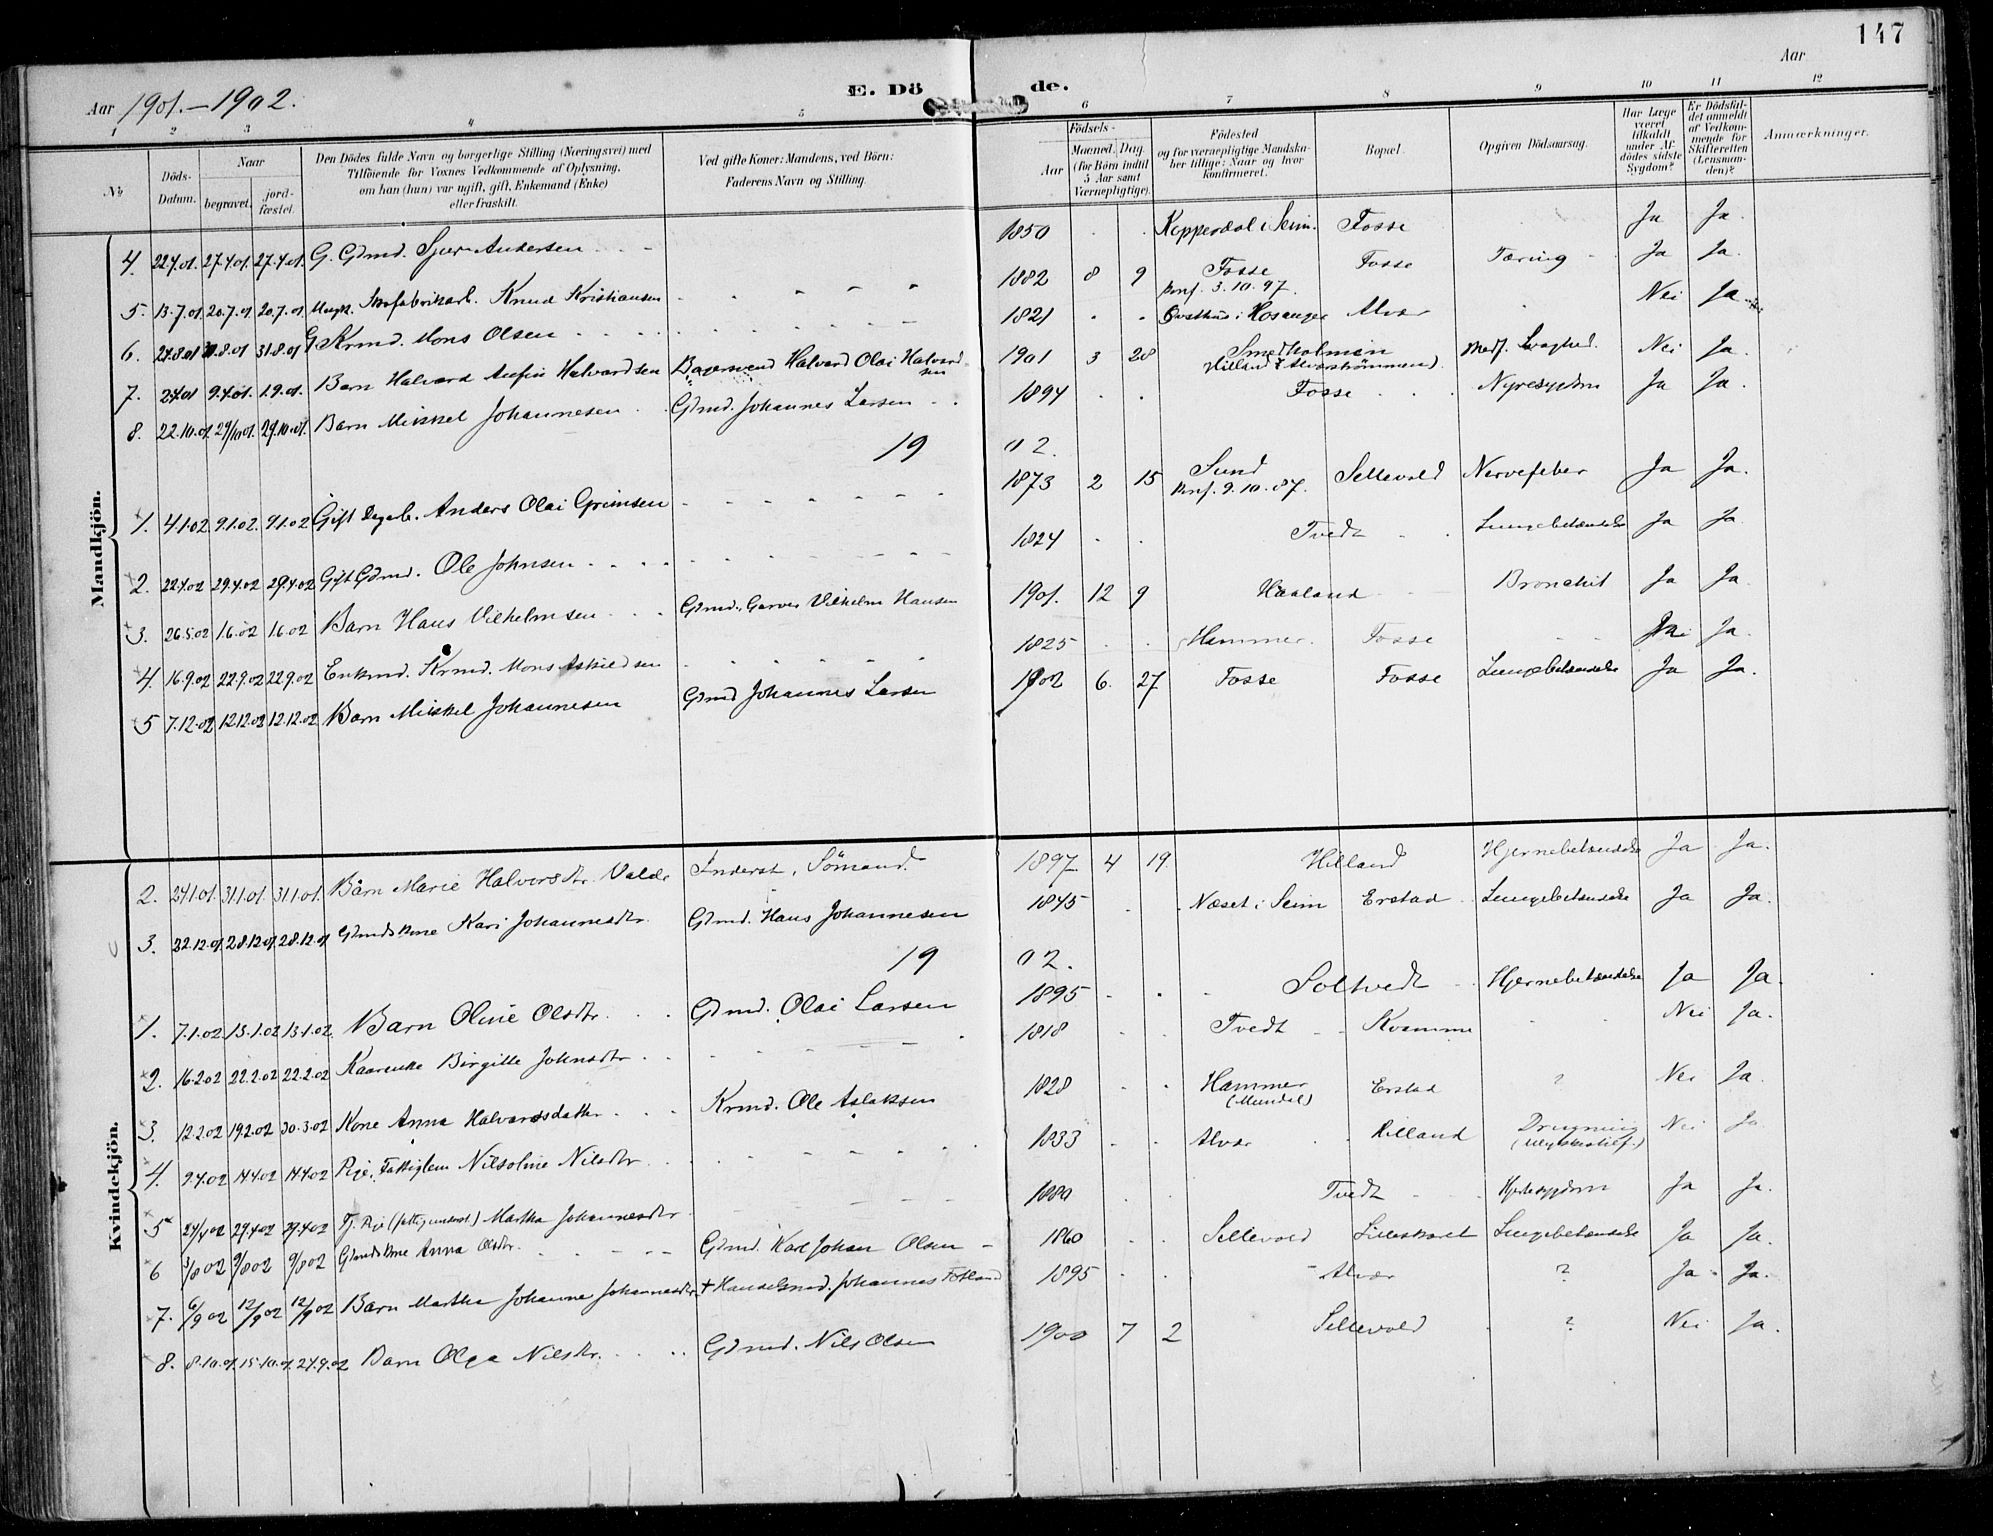 147
Aar 1901.-1902.
E. Dö de.
Aar
1 2 3 4 5 6 7 8 9 10 11 12
№
Döds-Datum.
Naar
begravet.
jord-fæstet.
Den Dödes fulde Navn og borgerlige Stilling (Næringsvei) med
Tilföiende for Voxnes Vedkommende af Oplysning,
om han (hun) var ugift, gift, Enkemand (Enke)
eller fraskilt.
Ved gifte Koner: Mandens, ved Börn:
Faderens Navn og Stilling.
Födsels-
Aar
Maaned. Dag.
(for Börn indtil
5 Aar samt
Værnepligtige).
Födested
og for værnepligtige Mandska-
ber tillige: Naar og hvor
konfirmeret.
Bopæl.
Opgiven Dödsaarsag.
Har Læge
været
tilkaldt
under Af-
dödes sidste
Sygdom?
Er Dödsfal-
det anmeldt
af Vedkom-
mende for
Skifteretten
(Lensman-
den)?
Anmærkninger.
Mandkjön.
4. 22.4.01. 27.4.01. 27.4.01. G. Gdmd. Sjur Andersen 1850 Kopperdal i Seim. Fosse Ja Ja.
5. 13.7.01 20.7.01 20.7.01 Knud Kristiansen 1882 8 9 Fosse Konf. 3.10.97. Fosse Tæring Ja Ja.
6. 24.8.01 31.8.01 31.8.01 G Krmd. Mons Olsen 1821 i Hosanger Alvær Nei Ja
7. 2.4.01 9.4.01. 1.9.01. Barn Halvard Anfin Halvardsen Halvard Olai Halvardsen 1901 3 28 Smedholmen Hilland Medf. Svaghed. Nei Ja.
8. 22.10.01. 29/10.01. 29.10.01. Barn Mikkel Johannesen Gdmd. Johannes Larsen 1894 Fosse Nyresygdom Ja Ja.
19 02.
1. 4.1.02 9.1.02. 9.1.02 Gift Anders Olai Grimsen 1873 2 15 Sund Konf. 9.10.87. Sellevold Nervefeber Ja Ja.
2. 22.4.02 29.4.02 29.4.02 Gift Gdmd. Ole Johnsen 1824 Tvedt Lungebetændelse Ja Ja
3. 26.5.02 1.6.02 1.6.02 Barn Hans Vilhelmsen Gdmd. Garver Vilhelm Hansen 1901. 12 9 Haaland Bronchit Ja Ja.
4. 16.9.02 22.9.02 22.9.02 Enkmd. Krmd. Mons Askildsen 1825 Hammer. Fosse Nei Ja.
5 7.12.02 12.12.02 12.12.02 Barn Mikkel Johannesen Gdmd Johannes Larsen 1902 6. 27 Fosse Fosse Lungebetændelse Ja Ja.
Kvindekjön.
2. 24.1.01. 31.1.01. 31.1.01. Barn Marie Halvorsdtr. Valde Inderst, Sömand. 1897 4 19. Hilland Hjernebetændelse Ja Ja.
3. 22.12.01. 28.12.01. 28.12.01 Gdmdskone Kari Johannesdtr. Gdmd. Hans Johannesen 1845 Næset i Seim Erstad Lungebetændelse Ja Ja.
19 02.
1. 7.1.02 13.1.02 13.1.02. Barn Oline Olsdtr. Gdmd. Olai Larsen 1895 Soltvedt Hjernebetændelse Ja Ja.
2. 16.2.02 22.2.02 22.2.02 Kaarenke Birgitte Johnsdtr 1818 Tvedt Kvamme Nei Ja.
3. 12.2.02 19.2.02 30.3.02 Kone Anna Halvardsdatter Krmd. Ole Aslaksen 1828 Hammer (Mundal) Erstad ? Nei Ja.
4. 9.4.02 14.4.02 14.4.02 Pige, Fattiglem Nilsoline Nilsdtr 1833 Alvær Hilland Drugning (Ulykkestilf.) Nei Ja
5 24/4 02 29.4.02 29.4.02 Tj. Pige (fattigunderst.) Martha Johannesdtr 1880 Tvedt Hjertesygdom Ja Ja.
6 3/8 02 9/8 02 9/8 02 Gdmdskone Anna Olsdtr. Gdmd. Karl Johan Olsen 1860 Sellevold Lilleskaret Lungebetændelse Ja Ja.
7. 6/9 02 12/9 02 12/9 02 Barn Martha Johanne Johannesdtr + Handelsmd. Johannes Fotland 1895 Alvær ? Ja Ja.
8. 8.10.01. 15.10.01. 27.9.02 Barn Olga Nilsdtr. Gdmd. Nils Olsen 1900 7 2 Sellevold ? Nei Ja.